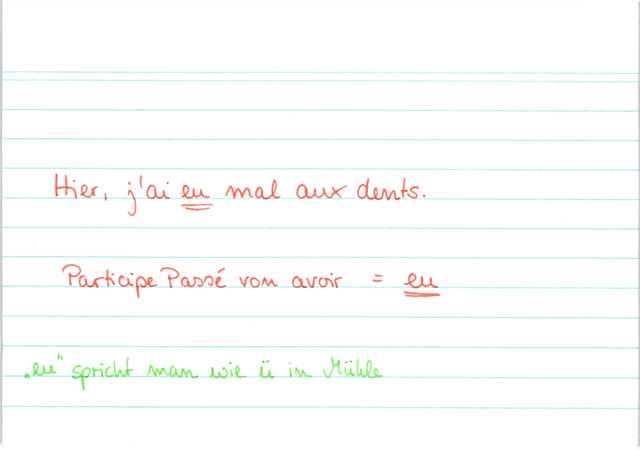 Hier, j'ai eu mal aux dents.
Participe Passé von avoir = eu
„eu" spricht man wie ü in Mühle